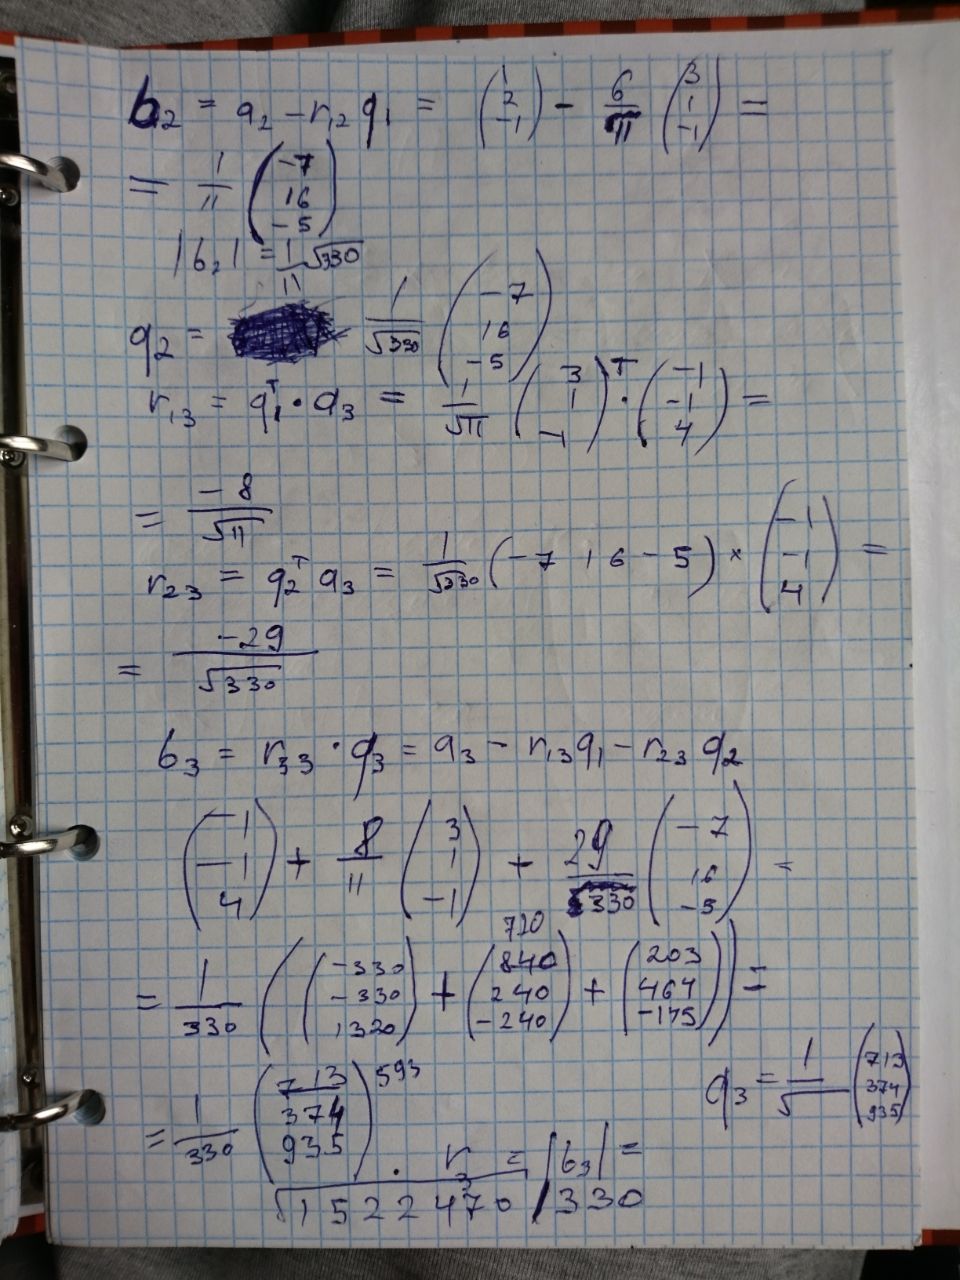 b₂ = a₂ - r₁₂ q₁ = (1 2 -1) - 6/11 (3 1 -1) =
= 1/11 (-7 16 -5)
|b₂| = 1/11 √330
q₂ = 1/√330 (-7 16 -5)
r₁₃ = q₁ᵀ · a₃ = 1/√11 (3 1 -1)ᵀ · (-1 -1 4) =
= -8/√11
r₂₃ = q₂ᵀ a₃ = 1/√330 (-7 16 -5) × (-1 -1 4) =
= -29/√330
b₃ = r₃₃ · q₃ = a₃ - r₁₃ q₁ - r₂₃ q₂
(-1 -1 4) + 8/11 (3 1 -1) + 29/330 (-7 16 -5) =
720
= 1/330 ((-330 -330 1320) + (840 240 -240) + (203 464 -145)) =
= 1/330 (713 374 935) 593
q₃ = 1/√ (713 374 935)
r₃ = |b₃| =
√1522470 / 330